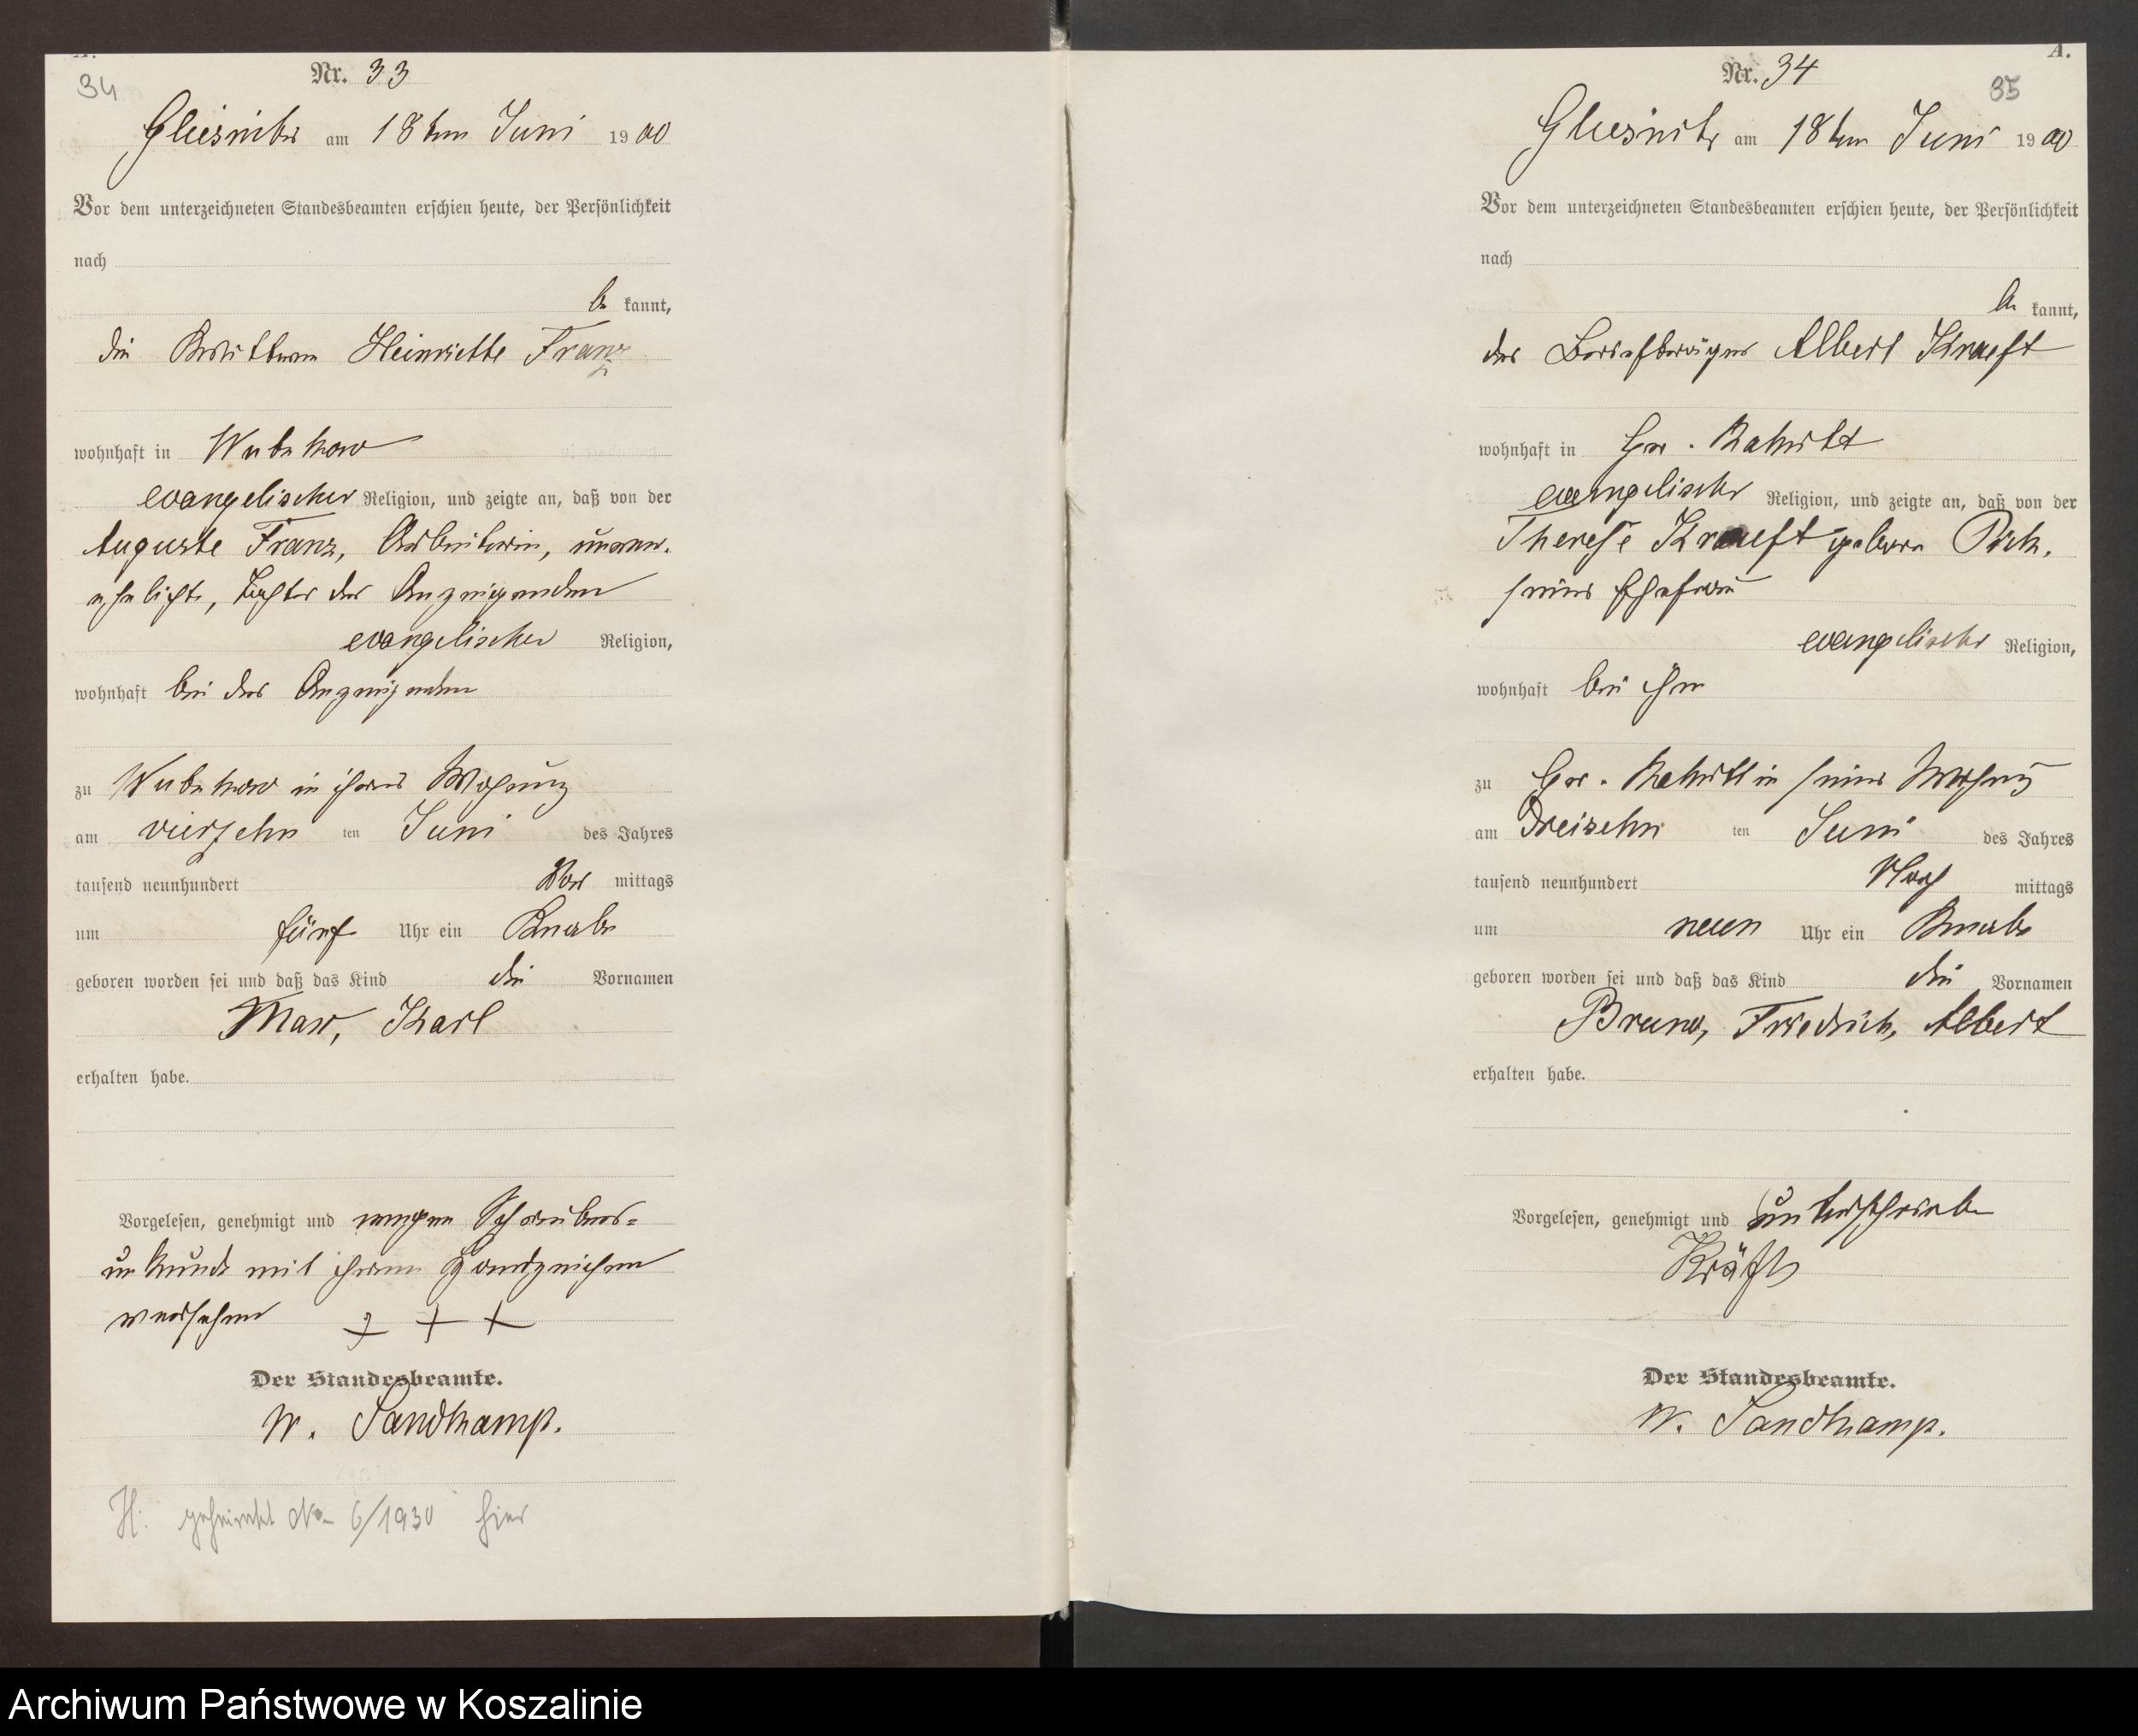 34
Nr. 33
Gliesnitz am 18ten Juni 1900
Vor dem unterzeichneten Standesbeamten erschien heute, der Persönlichkeit
nach
be kannt,
die Heinriette Franz
wohnhaft in Wutzkow
evangelischer Religion, und zeigte an, daß von der
Auguste Franz, Arbeiterin, unver-
ehelicht, Tochter der Anzeigenden
evangelischer Religion,
wohnhaft bei der Anzeigenden
zu Wutzkow in ihrer Wohnung
am vierzehn ten Juni des Jahres
tausend neunhundert Vor mittags
um fünf Uhr ein Knabe
geboren worden sei und daß das Kind die Vornamen
Max, Karl
erhalten habe.
Vorgelesen, genehmigt und wegen Schreibens-
unkunde mit ihrem Handzeichen
versehen + + +
Der Standesbeamte.
W. Sandkamp.
H: geheiratet No 6/1930 hier
A.
Nr. 34
35
Gliesnitz am 18ten Juni 1900
Vor dem unterzeichneten Standesbeamten erschien heute, der Persönlichkeit
nach
be kannt,
der Albert Kraeft
wohnhaft in Gr. Rakitt
evangelischer Religion, und zeigte an, daß von der
Therese Kraeft geborne
seiner Ehefrau
evangelischer Religion,
wohnhaft bei ihm
zu Gr. Rakitt in seiner Wohnung
am dreizehn ten Juni des Jahres
tausend neunhundert Nach mittags
um neun Uhr ein Knabe
geboren worden sei und daß das Kind die Vornamen
Bruno, Friedrich, Albert
erhalten habe.
Vorgelesen, genehmigt und unterschrieben
Kräft
Der Standesbeamte.
W. Sandkamp.
Archiwum Państwowe w Koszalinie